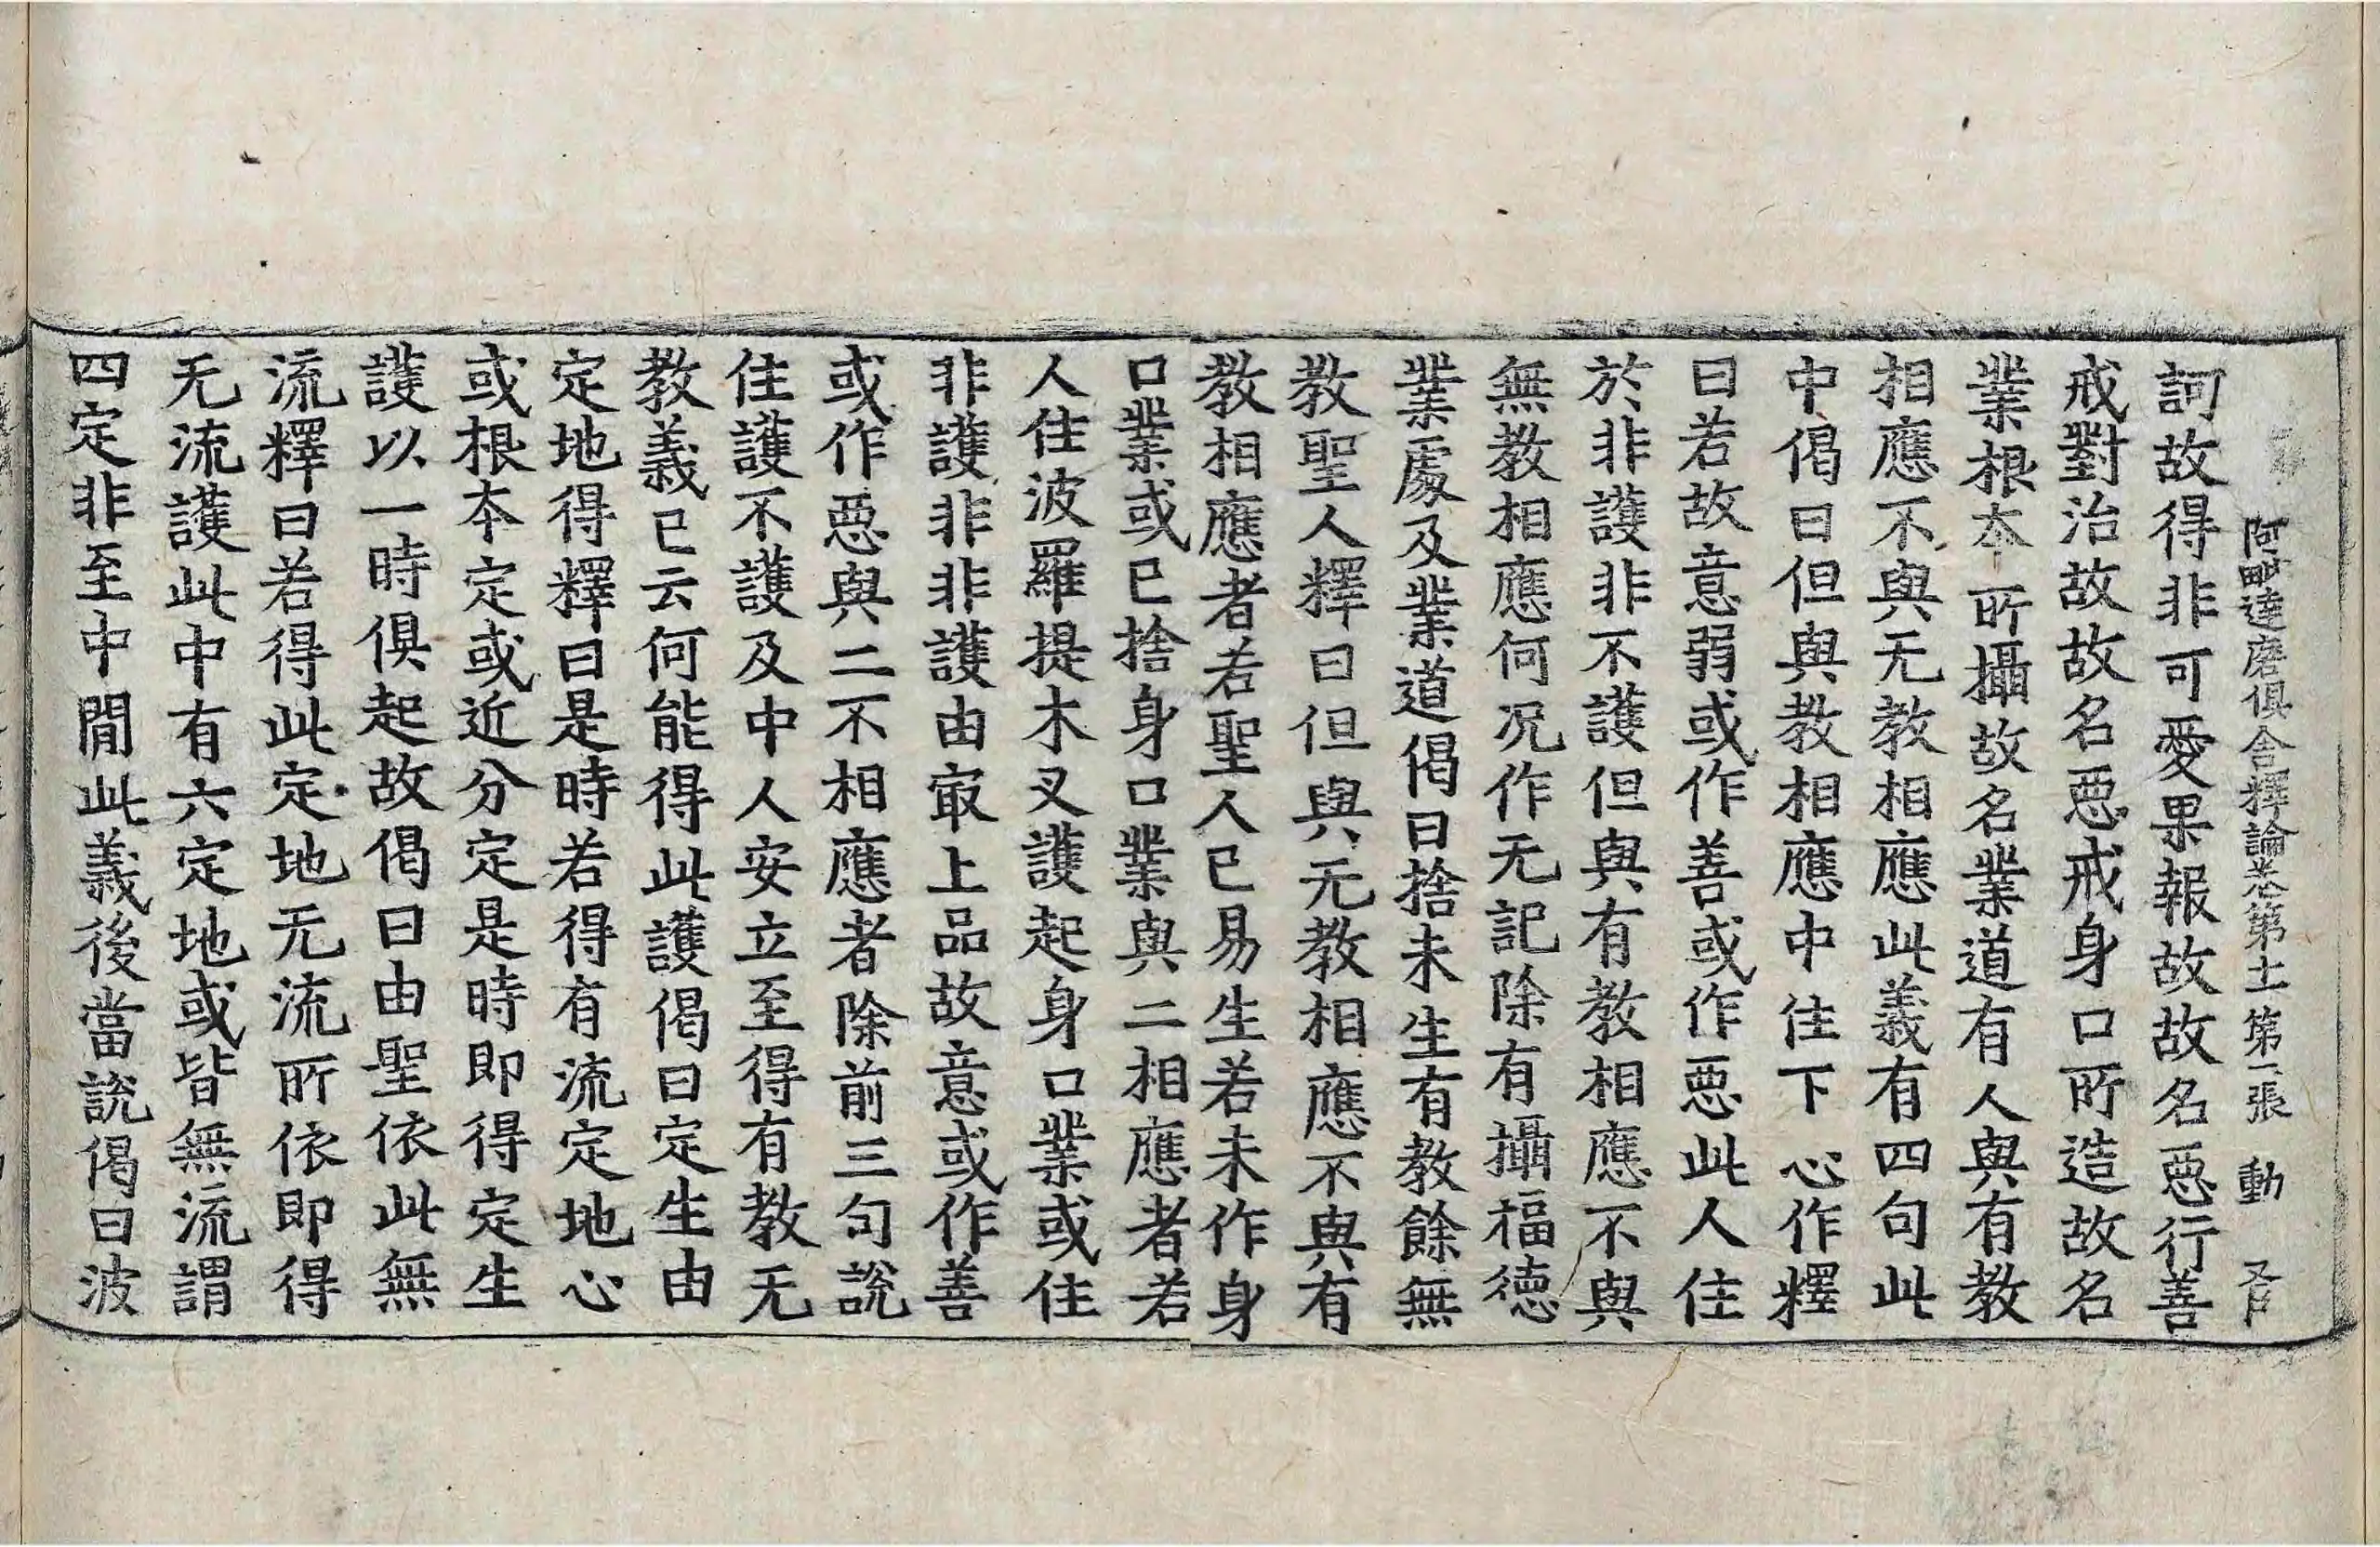 阿毗達磨俱舍釋論卷第十一 第二張 動
訶故得非可愛果報故故名惡行善
戒對治故故名惡戒身口所造故名
業根本所攝故名業道有人與有教
相應不與无教相應此義有四句此
中偈曰但與教相應中住下心作釋
曰若故意弱或作善或作惡此人住
於非護非不護但與有教相應不與
無教相應何况作无記除有攝福德
業處及業道偈曰捨未生有教餘無
教聖人釋曰但與无教相應不與有
教相應者若聖人已易生若未作身
口業或已捨身口業與二相應者若
人住波羅提木叉護起身口業或住
非護非非護由㝡上品故意或作善
或作惡與二不相應者除前三句說
住護不護及中人安立至得有教无
教義已云何能得此護偈曰定生由
定地得釋曰是時若得有流定地心
或根本定或近分定是時即得定生
護以一時俱起故偈曰由聖依此無
流釋曰若得此定地无流所依即得
无流護此中有六定地或皆無流謂
四定非至中間此義後當說偈曰波